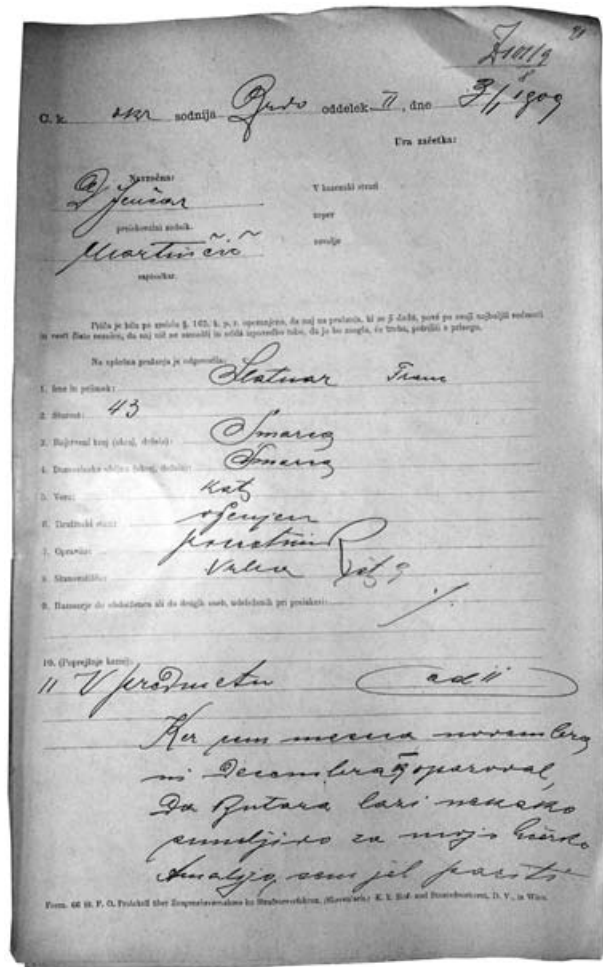 Z 101/9
C. k. okr sodnija Brdo oddelek II, dne 8/1 1909
Ura začetka:
Navzočna:
V kazenski stvari
D Jenčar
preiskovalni sodnik.
zoper
Martinčič
zaradi
zapisnikar.
Priča je bila po smislu §. 165. k. p. r. opomnjena, da naj na prašanja, ki se ji dadó, pové po svoji najboljši vednosti
in vesti čisto resnico, da naj nič ne zamolči in odda izpovedbo tako, da jo bo mogla, če treba, potrditi s prisego.
Na splošna prašanja je odgovorila:
1. Ime in priimek: Slatnar Franc
2. Starost: 43
3. Rojstveni kraj (okraj, dežela): Šmarca
4. Domovinska občina (okraj, dežela): Šmarca
5. Vera: kat
6. Družinski stan: oženjen
7. Opravilo: posestnik
8. Stanovališče:
9. Razmerje do obdolženca ali do drugih oseb, udeleženih pri preiskavi: ./.
10. (Poprejšnje kazni):
V predmetu ad II
Ker sem meseca novembra
in Decembra opazoval,
Da Butara lazi nekako
sumljivo za mojo hčerko
Amaljo, sem jel paziti
Form. 66 St. P. O. Protokoll über Zeugenvernehmung im Strafverfahren. (Slovenisch.) K. k. Hof- und Staatsdruckerei, D. V., in Wien.